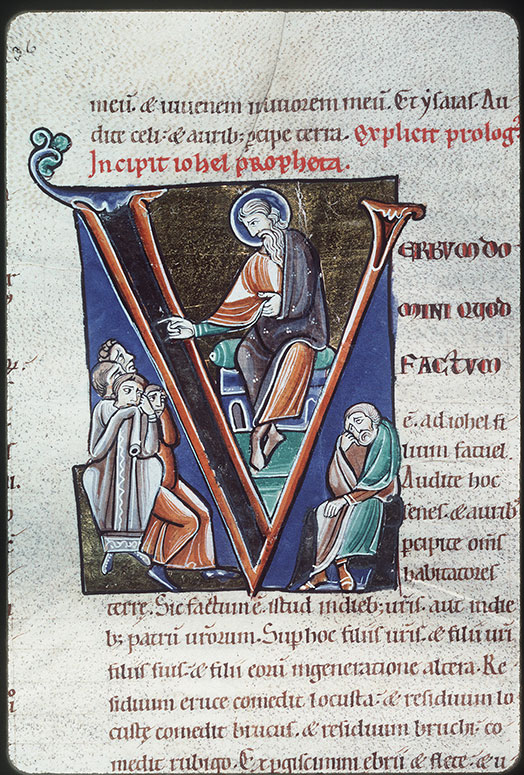 36
meū. & iuuenem iuuiorem meū. Et ysaias. Au
dite celi: & aurib; pcipe terra. Explicit prolog'
Incipit iohel propheta.
VERBVM DO
MINI QUOD
FACTVM
ē. ad iohel fi
lium fatuel.
Audite hoc
senes. & aurib;
pcipite om̄s
habitatores
terrę. Sic factum ē. istud indieb; uris. aut indie
b; patrū urorum. Sup hoc filiis uris. & filii uri
filiis suis. & filii eorū ingeneratione altera. Re
siduum eruce comedit locusta: & residuum lo
custę comedit brucus. & residuum bruchi: co
medit rubigo. Expgiscimini ebrii & flete. & u